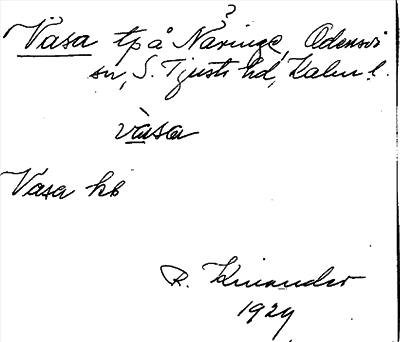 ?
Vasa tp å Näringe, Odensvi
sn, S. Tjusts hd, Kalm. l.
vàsa
Vasa hb
R. Kinander
1929